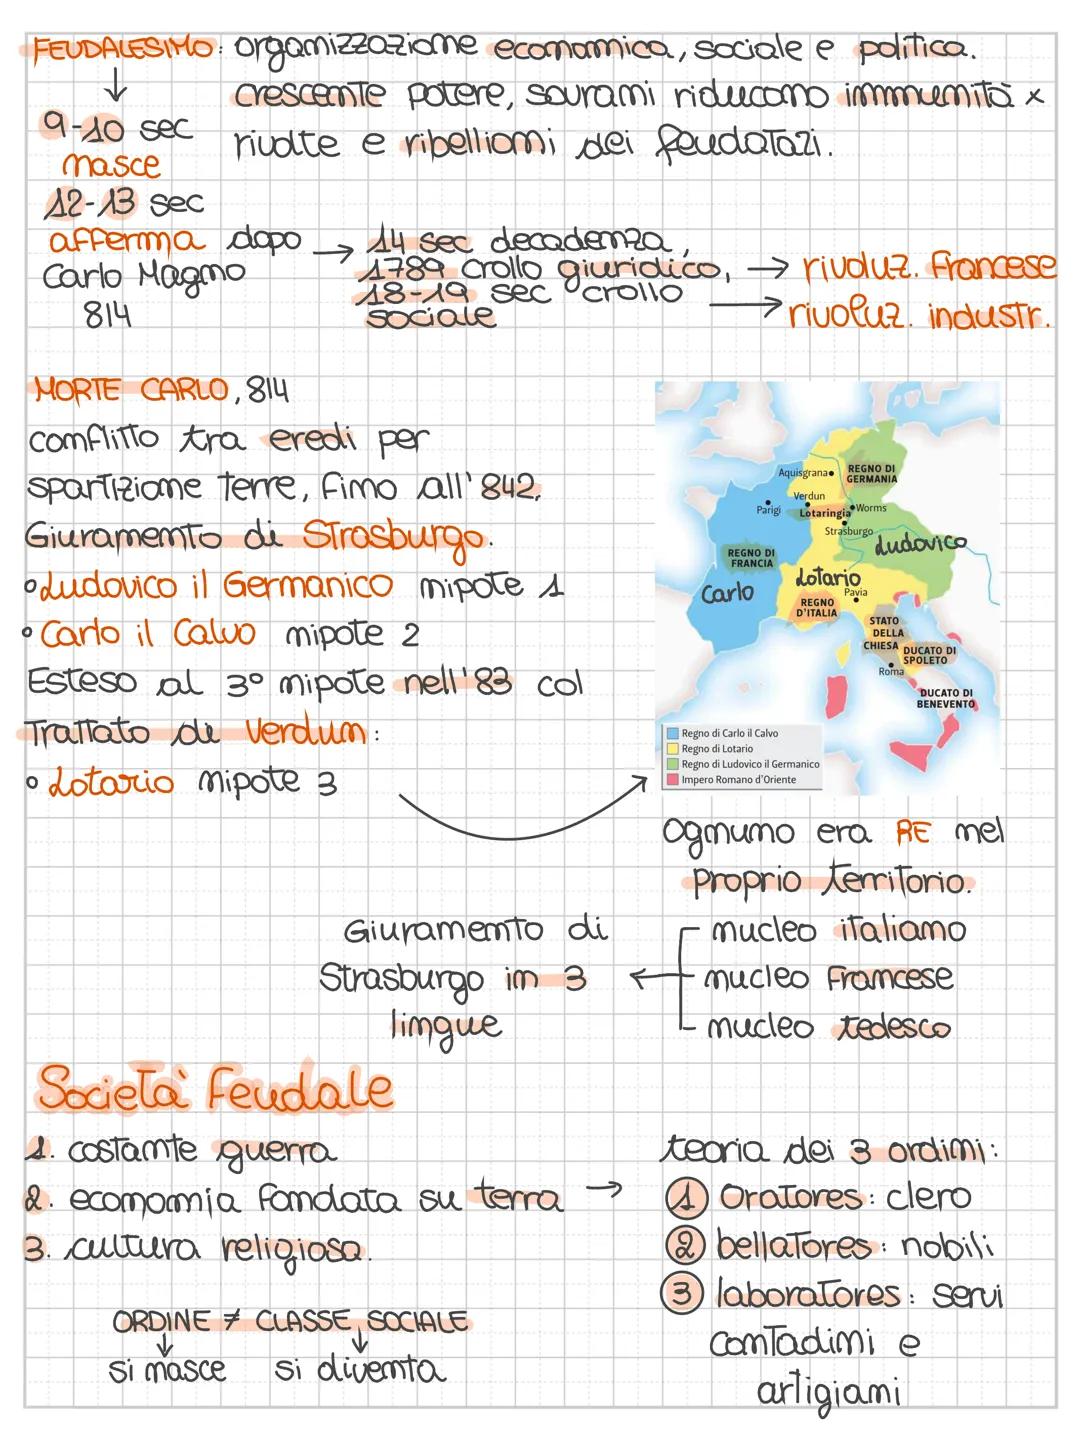 FEUDALESIMO: organizzazione economica, sociale e politica.
crescente potere, sovrani riducono immunità x
rivolte e ribellioni dei feudatazi.
↓
9-10 sec
nasce
12-13 sec
afferma dopo
Carlo Magno
814
→ 14 sec decadenza,
1789 crollo giuridico,
18-19 sec crollo
sociale
→ rivoluz. francese
→ rivoluz. industr.
MORTE CARLO, 814
conflitto tra eredi per
spartizione terre, fino all'842.
Giuramento di Strasburgo.
• Ludovico il Germanico nipote 1
• Carlo il Calvo nipote 2
Esteso al 3° nipote nell'83 col
Trattato di Verdun:
• Lotario nipote 3
Aquisgrana
REGNO DI
GERMANIA
Verdun
Parigi
Lotaringia
Worms
Strasburgo
Ludovico
REGNO DI
FRANCIA
Carlo
Lotario
Pavia
REGNO
D'ITALIA
STATO
DELLA
CHIESA
DUCATO DI
SPOLETO
Roma
DUCATO DI
BENEVENTO
Regno di Carlo il Calvo
Regno di Lotario
Regno di Ludovico il Germanico
Impero Romano d'Oriente
Ognuno era RE nel
proprio territorio.
nucleo italiano
nucleo francese
nucleo tedesco
Giuramento di
Strasburgo in 3
lingue
Società feudale
1. costante guerra
2. economia fondata su terra →
3. cultura religiosa.
ORDINE ≠ CLASSE SOCIALE
↓ ↓
si nasce si diventa
teoria dei 3 ordini:
1 Oratores: clero
2 bellatores: nobili
3 laboratores: servi
contadini e
artigiani